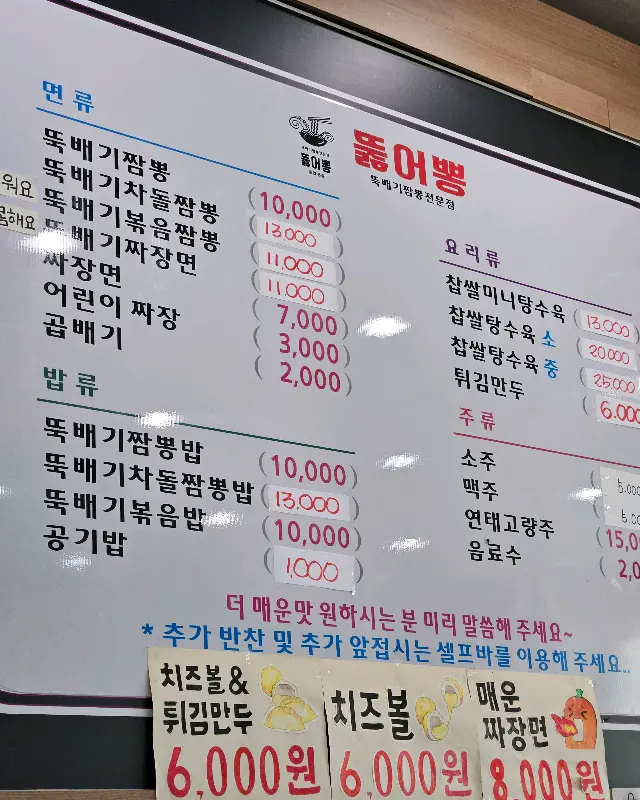 면류
뚝배기짬뽕 (10,000)
뚝배기차돌짬뽕 (13.000)
뚝배기볶음짬뽕 (11.000)
뚝배기짜장면 (11.000)
짜장면 (7,000)
어린이 짜장 (3,000)
곱배기 (2,000)
밥류
뚝배기짬뽕밥 (10,000)
뚝배기차돌짬뽕밥 (13.000)
뚝배기볶음밥 (10,000)
공기밥 (1.000)
뚫어뽕
뚫어뽕
뚝배기짬뽕전문점
요리류
찹쌀미니탕수육 (13.000)
찹쌀탕수육 소 (20.000
찹쌀탕수육 중 (25.000
튀김만두 (6.000
주류
소주 5.000
맥주 5.00
연태고량주 (15,0
음료수 (2,0
더 매운맛 원하시는 분 미리 말씀해 주세요~
* 추가 반찬 및 추가 앞접시는 셀프바를 이용해 주세요..
치즈볼 &
튀김만두
6,000원
치즈볼
6,000원
매운
짜장면
8,000원